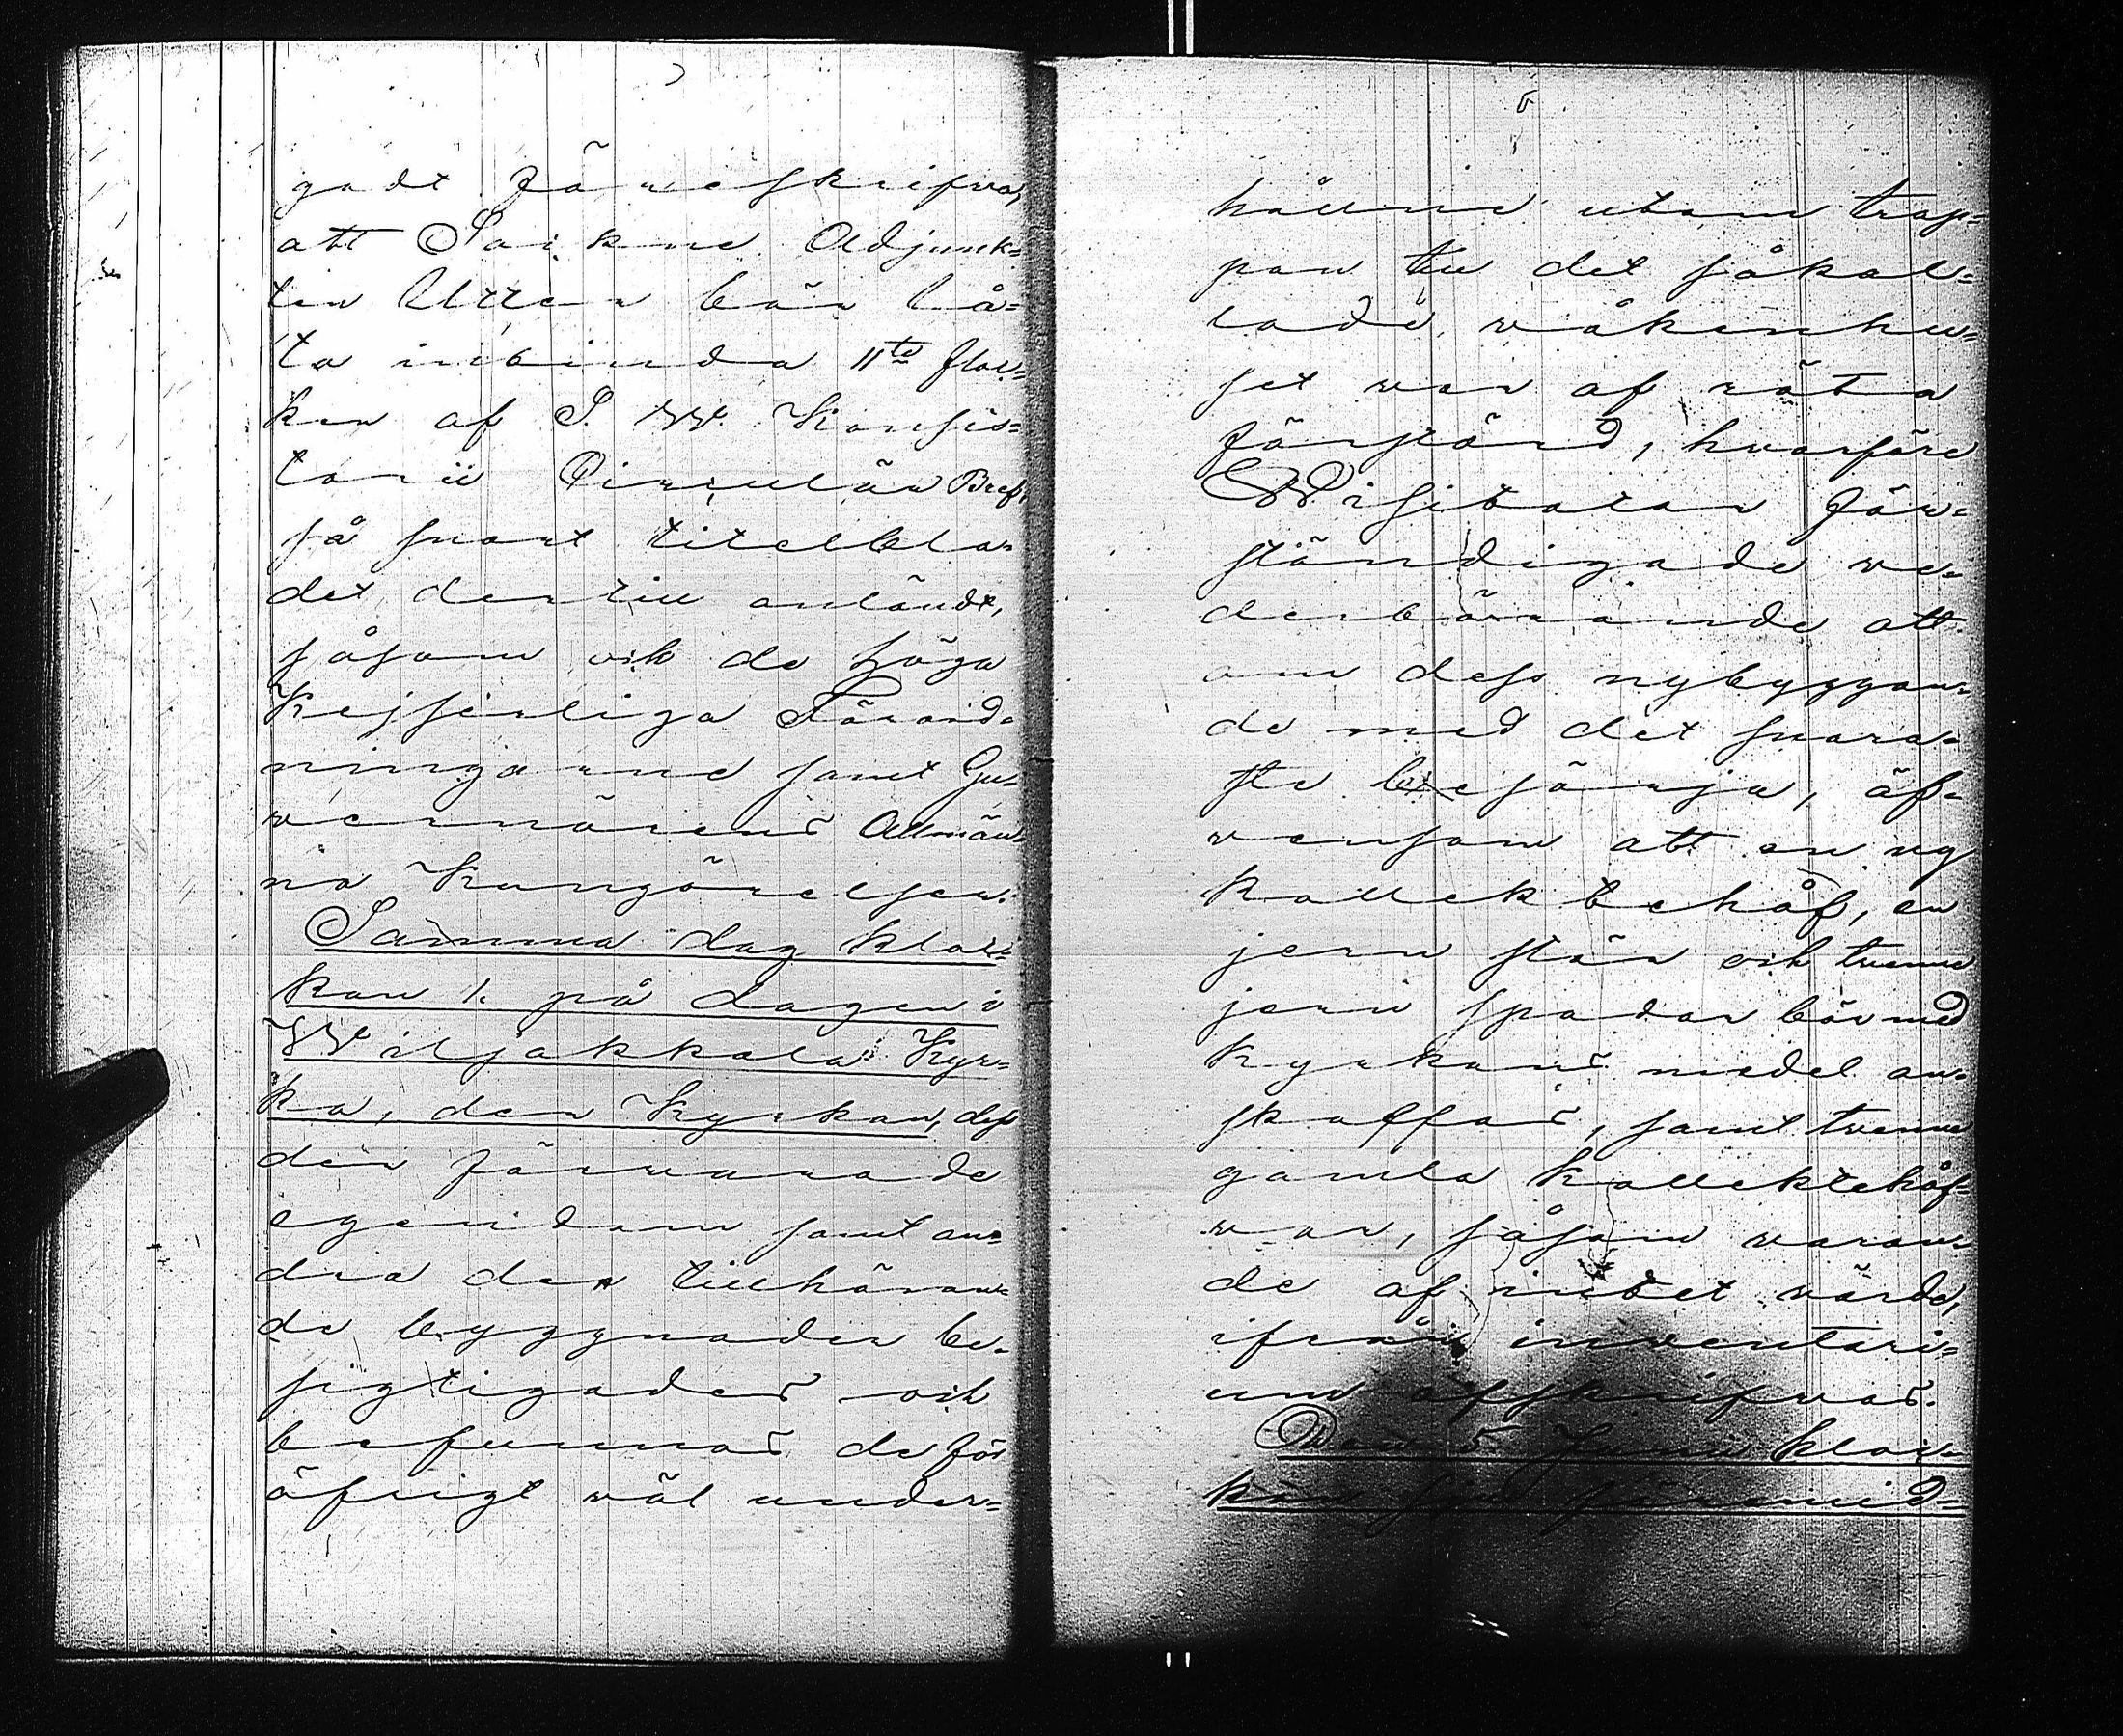 gadt föreskrifva,
att Sockne Adjunk=
ten Utter bör lå=
ta inbinda 11te floc=
ken af S. W. Konsis=
torii Circulär Bref,
så snart titelbla-
det dertill anländt,
såsom och de höga
Kejserliga Förord-
ningarne samt Gu-
vernörens Allmän-
na Kungörelser.
Samma dag kloc-
kan 1. på dagen i
Wiljakkala Kyr-
ka, der Kyrkan, dess
der förvarade
egendom samt an-
dra der tillhöran-
de byggnader be-
sigtigades och
befunnos de för
öfrigt väl under-
hållne utom trap-
pan till det såkal-
lade, våkenhu-
set var af röta
förstörd, hvarföre
Wisitator För-
ständigade ve-
derbörande att
om dess nybyggan-
de med det snara-
ste besörja, äf-
vensom att en ny
kollekt behåf, en
jern stör och twenne
jern spadar bör med
kyrkans medel an-
skaffas, samt twenne
gamla kollektehåf-
var, såsom varan-
de af intet värde,
ifrån inventari-
um afskrifvas.
Den 5 Junii kloc-
kan sju föremid-